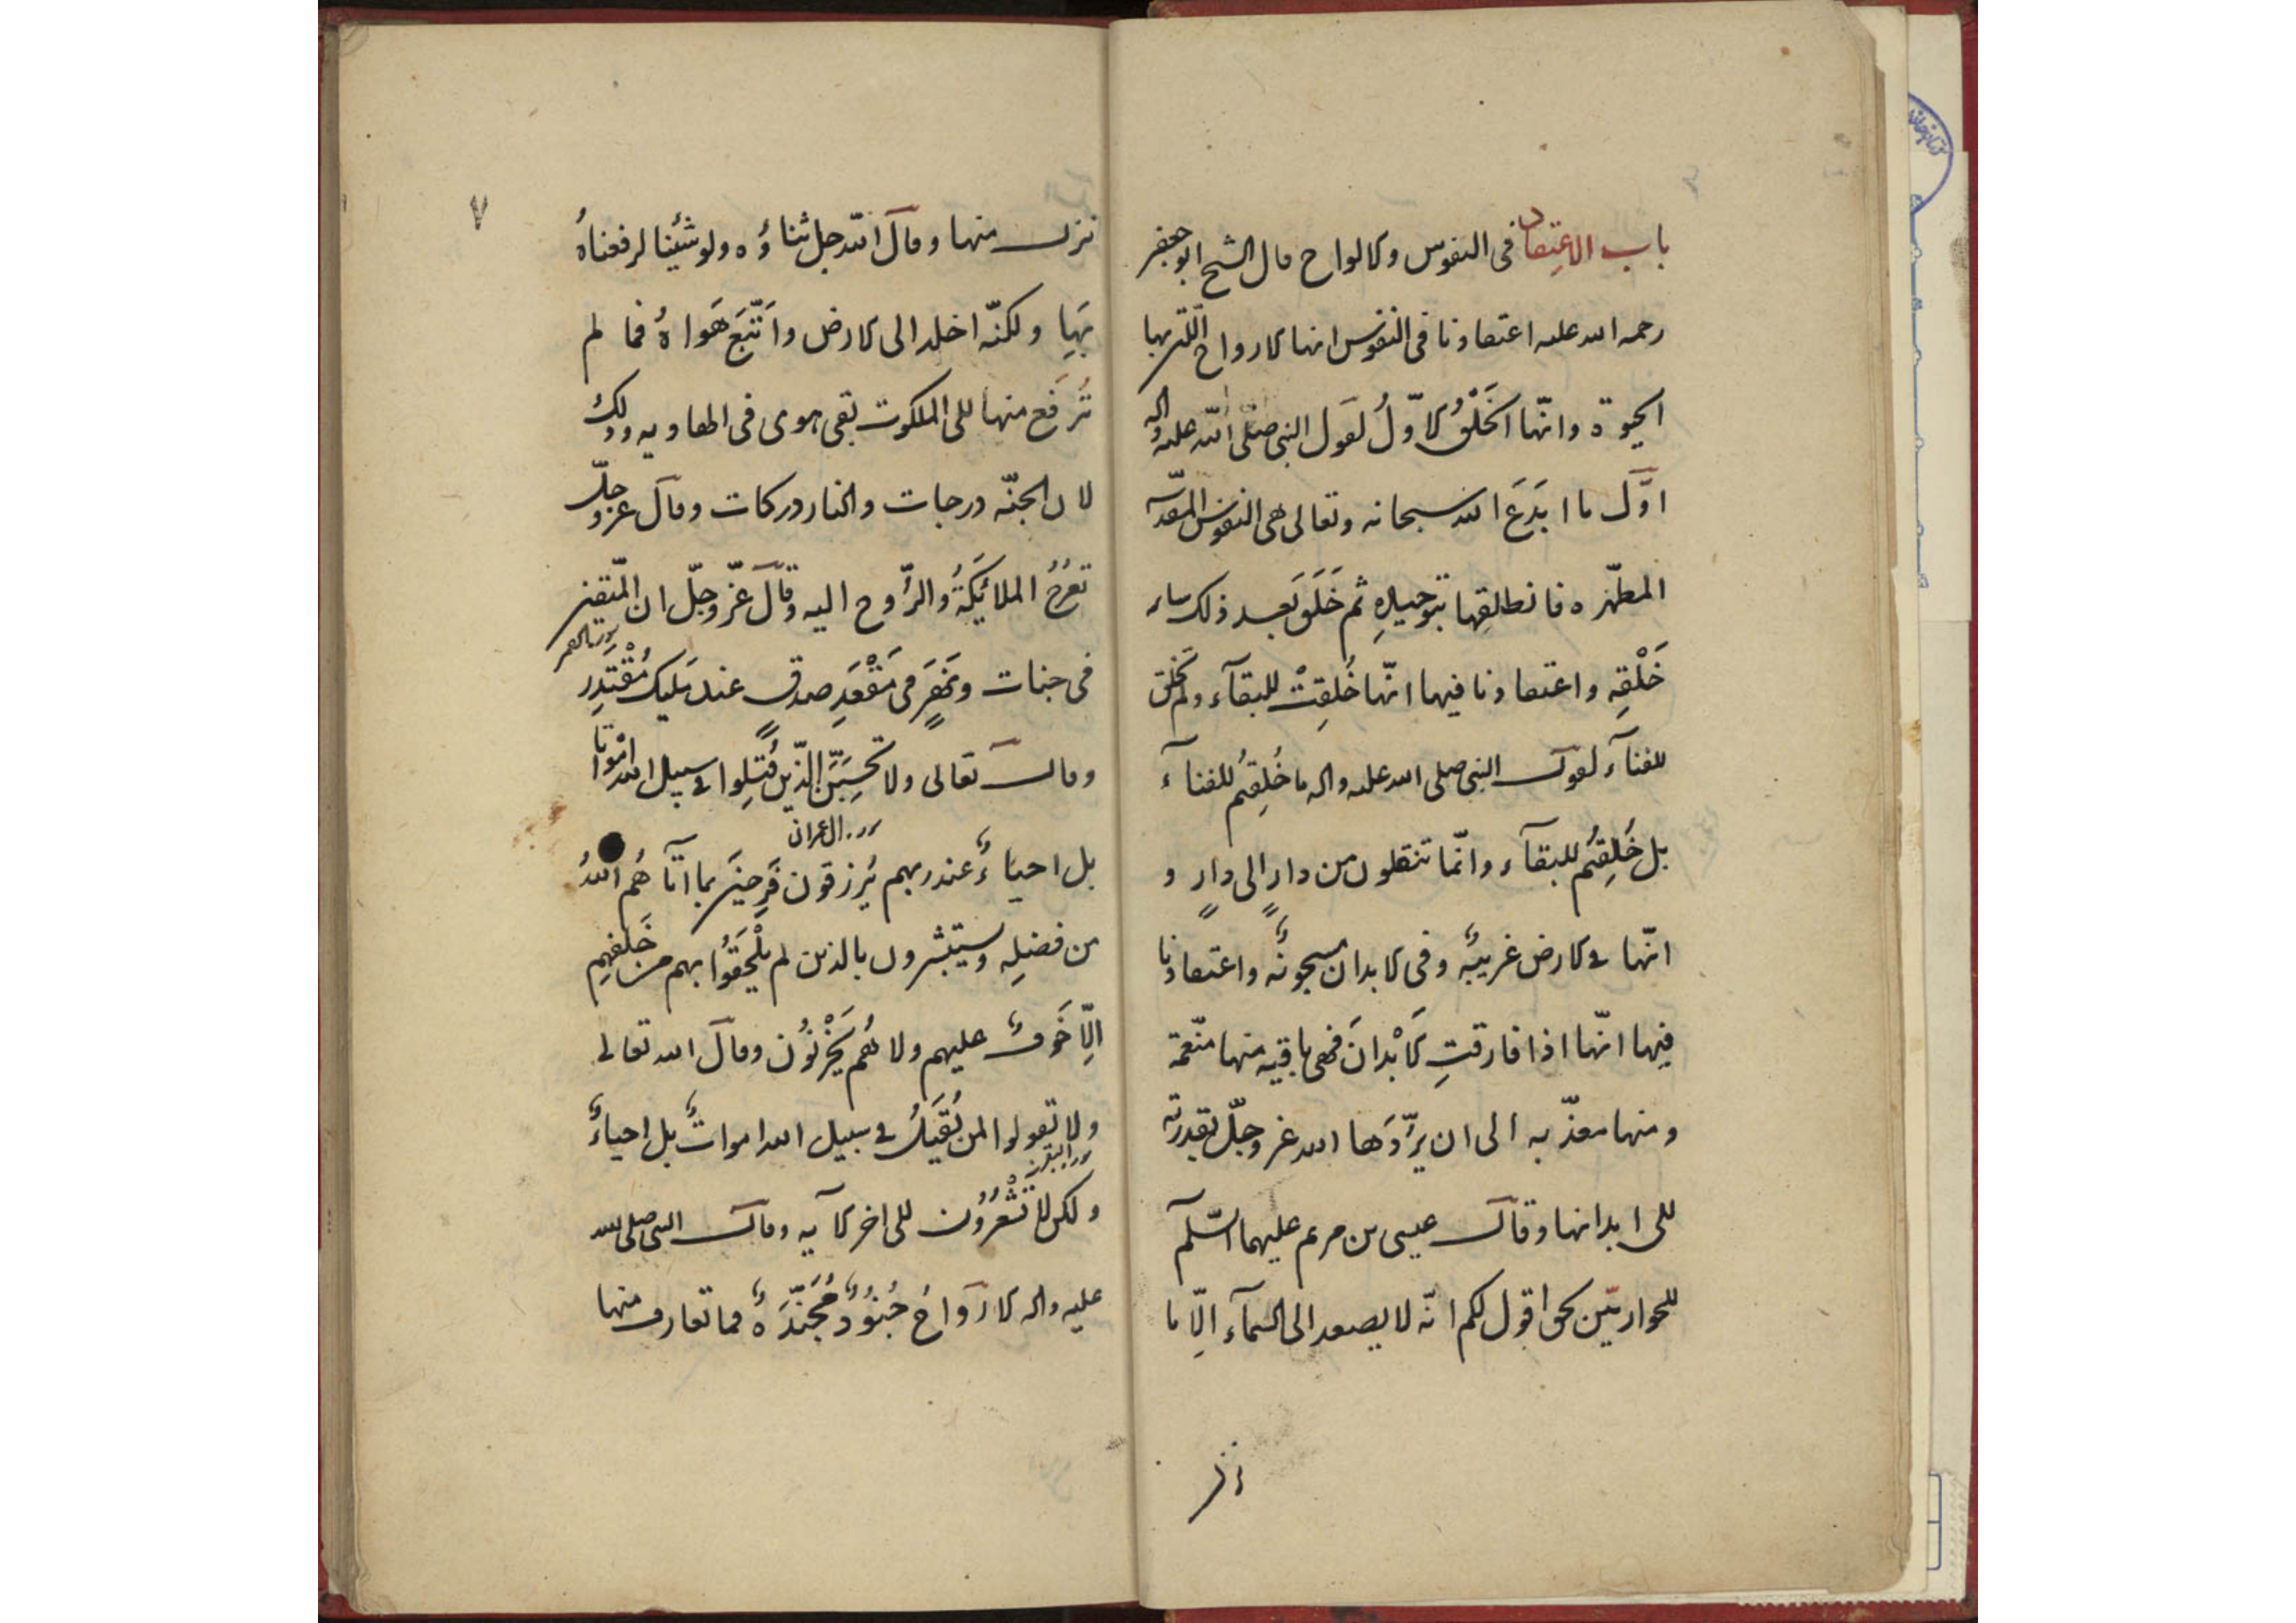 باب الاعتقاد فى النفوس والارواح قال الشيخ ابوجعفر
رحمه الله عليه اعتقادنا فى النفوس انها الارواح الّتى بها
الحيوة وانّها الخَلْقُ الاوّلُ لقول النبى صلّى الله عليه واله
اوّل ما ابَدَعَ الله سبحانه وتعالى هى النفوس المقدّسه
المطهّره فانطقها بتوحيدِهِ ثم خَلَقَ بعد ذلك ساير
خَلْقِهِ واعتقادنا فيها انّها خُلِقِتْ للبقآء ولم تخلق
للفنآء لقول النبى صلى الله عليه واله ما خُلِقتُم للفنآء
بل خُلِقتُم للبقآء وانّما تنتقلون من دارٍ الى دارٍ و
انّها فى الارض غريبةٌ وفى الابدان مسجونةٌ واعتقادنا
فيها انّها اذا فارقتِ الاَبْدانَ فهى باقيه منها منّعمة
ومنها معذّبه الى ان يرّدَها الله عز وجلّ بقدرته
الى ابدانها وقال عيسى بن مريم عليهما السّلم
للحواريّين بحق اقول لكم انّه لا يصعد الى السمآء الّا ما
نزل
٧
نزل منها وقال الله جل ثناؤُه ولو شئنا لرفعناهُ
بَهِا ولكنّه اخلد الى الارض واَتّبَعَ هَواهُ فما لم
تُرفَع منها الى الملكوت بقى يهوى فى الهاويه وذلك
لان الجنّه درجات والنار دركات وقال عزوجلّ
تعرُجُ الملائِكَةُ والرّوح اليه وقال عزّ وجلّ ان المتّقين
فى جنات ونَهَرٍ فى مَقْعَدِ صدقٍ عند مَليك مُقْتَدِر
وقال تعالى ولا تحسِبَنَّ الذّين قُتِلِوا فى سبيل الله امْواتا
ال عمران
بل احياءٌ عند ربهم يُرزقون فَرِحينَ بما اتاهُم اللهُ
من فضلِه ويستبشرون بالذين لم يلْحَقُوا بهم من خَلفهِم
الّا خَوفٌ عليهم ولا هُم يَحْزنُون وقال الله تعالى
ولا تقولوا لمن يُقتَلُ فى سبيل الله امواتٌ بل احياءٌ
البقره
ولكن لا تَشْعُرُون الى اخر الآيه وقال النبى صلى الله
عليه واله الارَواحُ جُنُودٌ مُجَنّدَةٌ فما تعارف منها